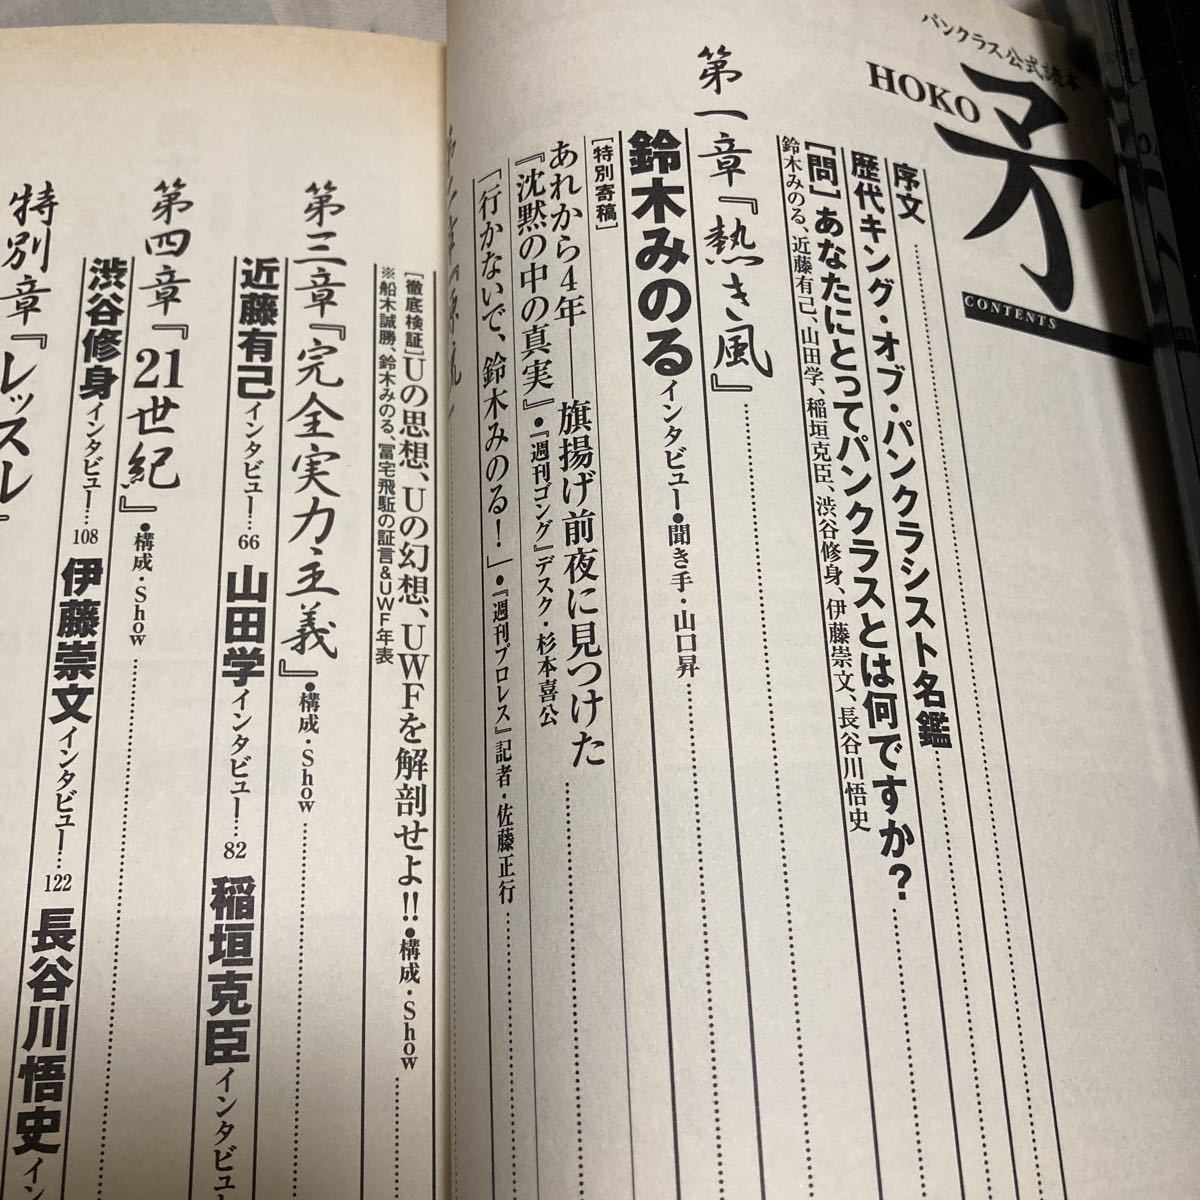 パンクラス公式読本
矛
HOKO
CONTENTS
序文
歴代キング・オブ・パンクラシスト名鑑
[問]あなたにとってパンクラスとは何ですか?
鈴木みのる、近藤有己、山田学、稲垣克臣、渋谷修身、伊藤崇文、長谷川悟史
第一章『熱き風』
鈴木みのるインタビュー●聞き手・山口昇
[特別寄稿]
あれから4年――旗揚げ前夜に見つけた
『沈黙の中の真実』●『週刊ゴング』デスク・杉本喜公
「行かないで、鈴木みのる!」●『週刊プロレス』記者・佐藤正行
[徹底検証]Uの思想、Uの幻想、UWFを解剖せよ!!●構成・Show
※船木誠勝、鈴木みのる、冨宅飛駈の証言&UWF年表
第三章『完全実力主義』●構成・Show
近藤有己インタビュー…66 山田学インタビュー…82 稲垣克臣インタビュ
第四章『21世紀』●構成・Show
渋谷修身インタビュー…108 伊藤崇文インタビュー…122 長谷川悟史イン
特別章『レッスル』